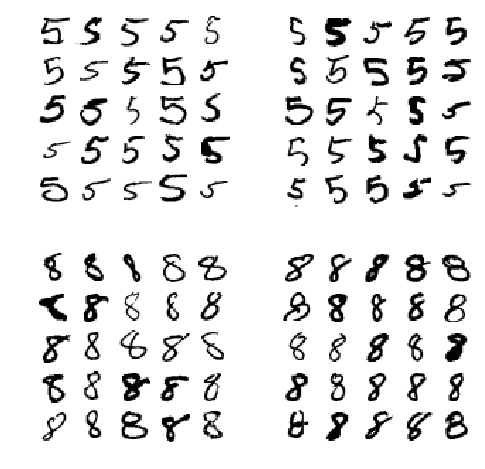 5 5 5 5 5 5 5 5 5 5
5 5 5 5 5 5 5 5 5 5
5 5 5 5 5 5 5 5 5 5
5 5 5 5 5 5 5 5 5 5
5 5 5 5 5 5 5 5 5 5
8 8 8 8 8 8 8 8 8 8
8 8 8 8 8 8 8 8 8
8 8 8 8 8 8 8 8 8 8
8 8 8 8 8 8 8 8 8 8
8 8 8 8 8 8 8 8 8 8